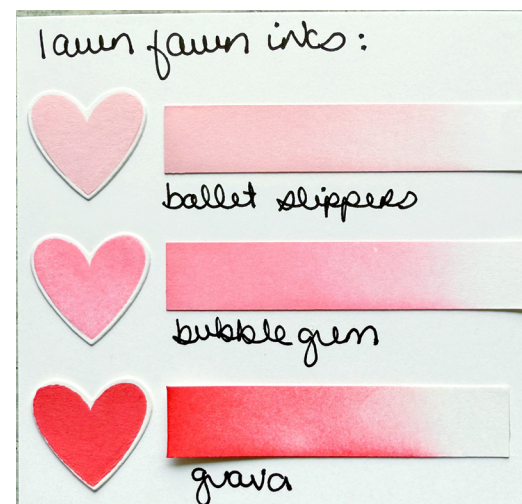 lawn fawn inks:
ballet slippers
bubble gum
guava